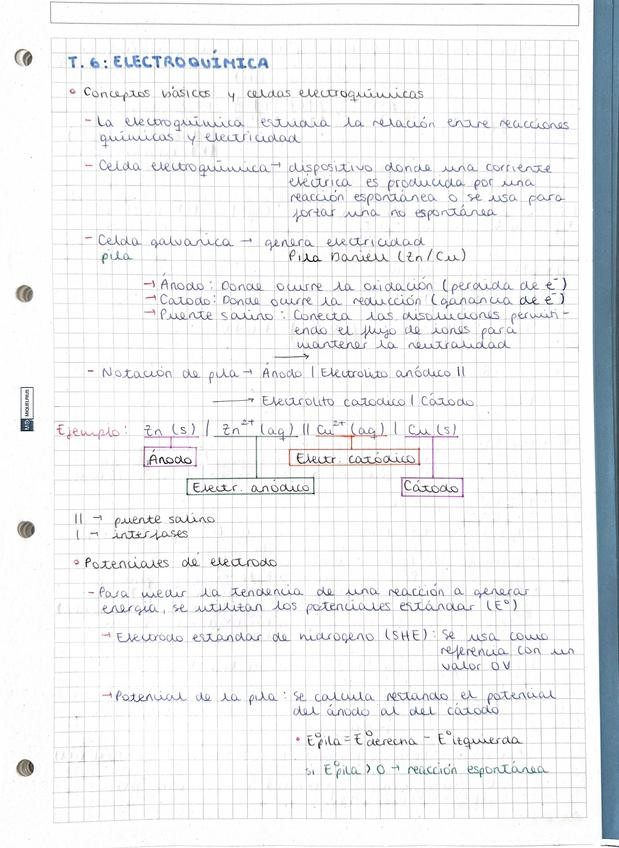 T. 6: ELECTROQUÍMICA
° Conceptos básicos y celdas electroquímicas
- La electroquímica estudia la relación entre reacciones
químicas y electricidad
- Celda electroquímica → dispositivo donde una corriente
eléctrica es producida por una
reacción espontánea o se usa para
forzar una no espontánea
- Celda galvánica → genera electricidad
pila Pila Daniell (Zn/Cu)
→ Ánodo: Donde ocurre la oxidación (pérdida de e⁻)
→ Cátodo: Donde ocurre la reducción (ganancia de e⁻)
→ Puente salino: Conecta las disoluciones permiti-
endo el flujo de iones para
mantener la neutralidad
- Notación de pila → Ánodo | Electrolito anódico ||
→ Electrolito catódico | Cátodo
Ejemplo: Zn (s) | Zn²⁺ (aq) || Cu²⁺ (aq) | Cu (s)
Ánodo Electr. catódico
Electr. anódico Cátodo
|| → puente salino
| → interfases
° Potenciales de electrodo
- Para medir la tendencia de una reacción a generar
energía, se utilizan los potenciales estándar (E°)
→ Electrodo estándar de hidrógeno (SHE): Se usa como
referencia con un
valor 0V
→ Potencial de la pila: se calcula restando el potencial
del ánodo al del cátodo
• E°pila = E°derecha - E°izquierda
si E°pila > 0 → reacción espontánea
MIQUELRIUS